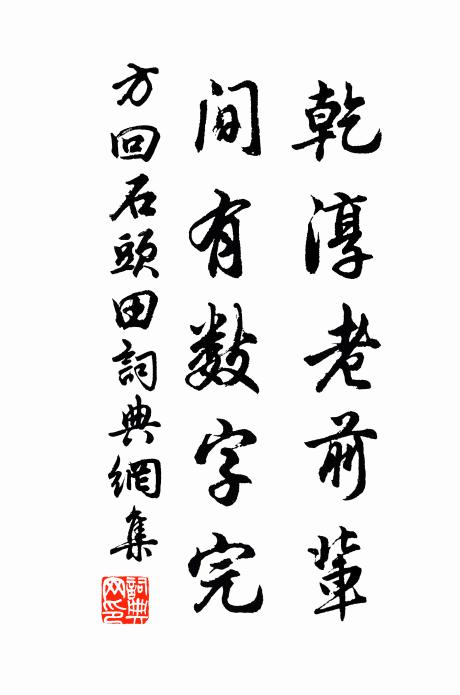 乾淳老前輩
间有数字完
方回石頭田詞典網集
詞典网印